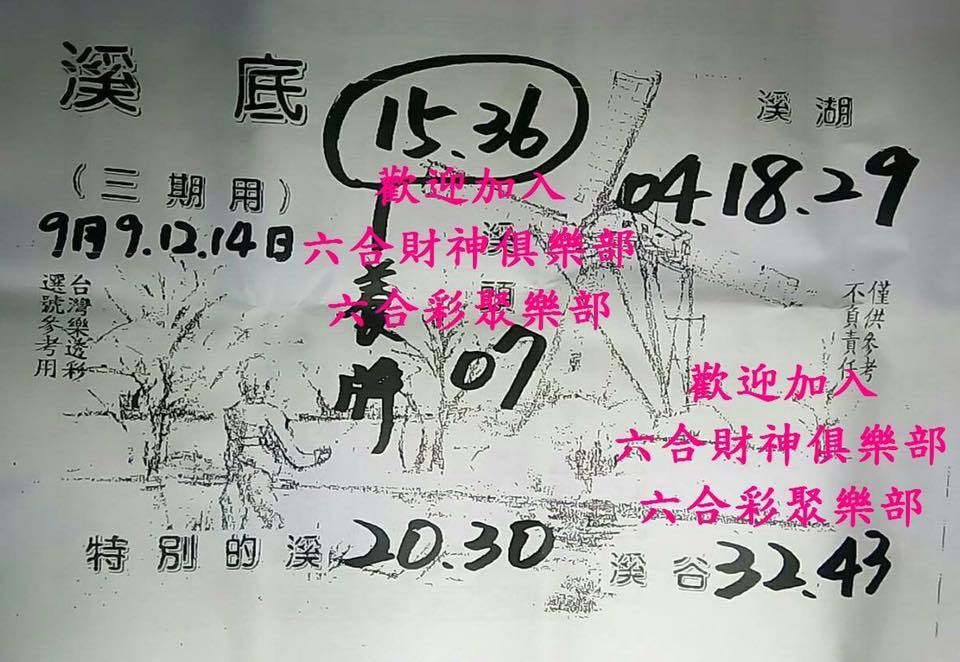 溪底
15.36
溪湖
04.18.29
(三期用)
9月9.12.14日
歡迎加入
六合財神俱樂部
六合彩聚樂部
溪頭
07
養牌
台灣樂透彩
選號參考用
僅供參考
不負責任
歡迎加入
六合財神俱樂部
六合彩聚樂部
特別的溪 20.30
溪谷 32.43